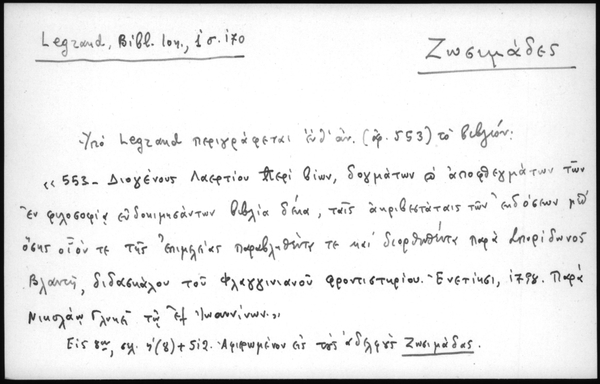 Legrand, Bibl. Ion., 1 σ. 170
Ζωσιμάδες
Ὑπὸ Legrand περιγράφεται ἐνθ' ἀν. (ἀρ. 553) τὸ βιβλίον:
«553 - Διογένους Λαερτίου Περὶ βίων, δογμάτων καὶ ἀποφθεγμάτων τῶν
ἐν φιλοσοφίᾳ εὐδοκιμησάντων βιβλία δέκα, ταῖς ἀκριβεστάταις τῶν ἐκδόσεων μεθ'
ὅσης οἷόν τε τῆς ἐπιμελείας παραβληθέντα τε καὶ διορθωθέντα παρὰ Σπυρίδωνος
Βλαντῆ, διδασκάλου τοῦ Φλαγγινιανοῦ φροντιστηρίου. Ἐνετίησι, 1798. Παρὰ
Νικολάῳ Γλυκεῖ τῷ ἐξ Ἰωαννίνων.»
Εἰς 8ον, σελ. η'(8) + 512. Ἀφιερωμένον εἰς τοὺς ἀδελφοὺς Ζωσιμάδας.